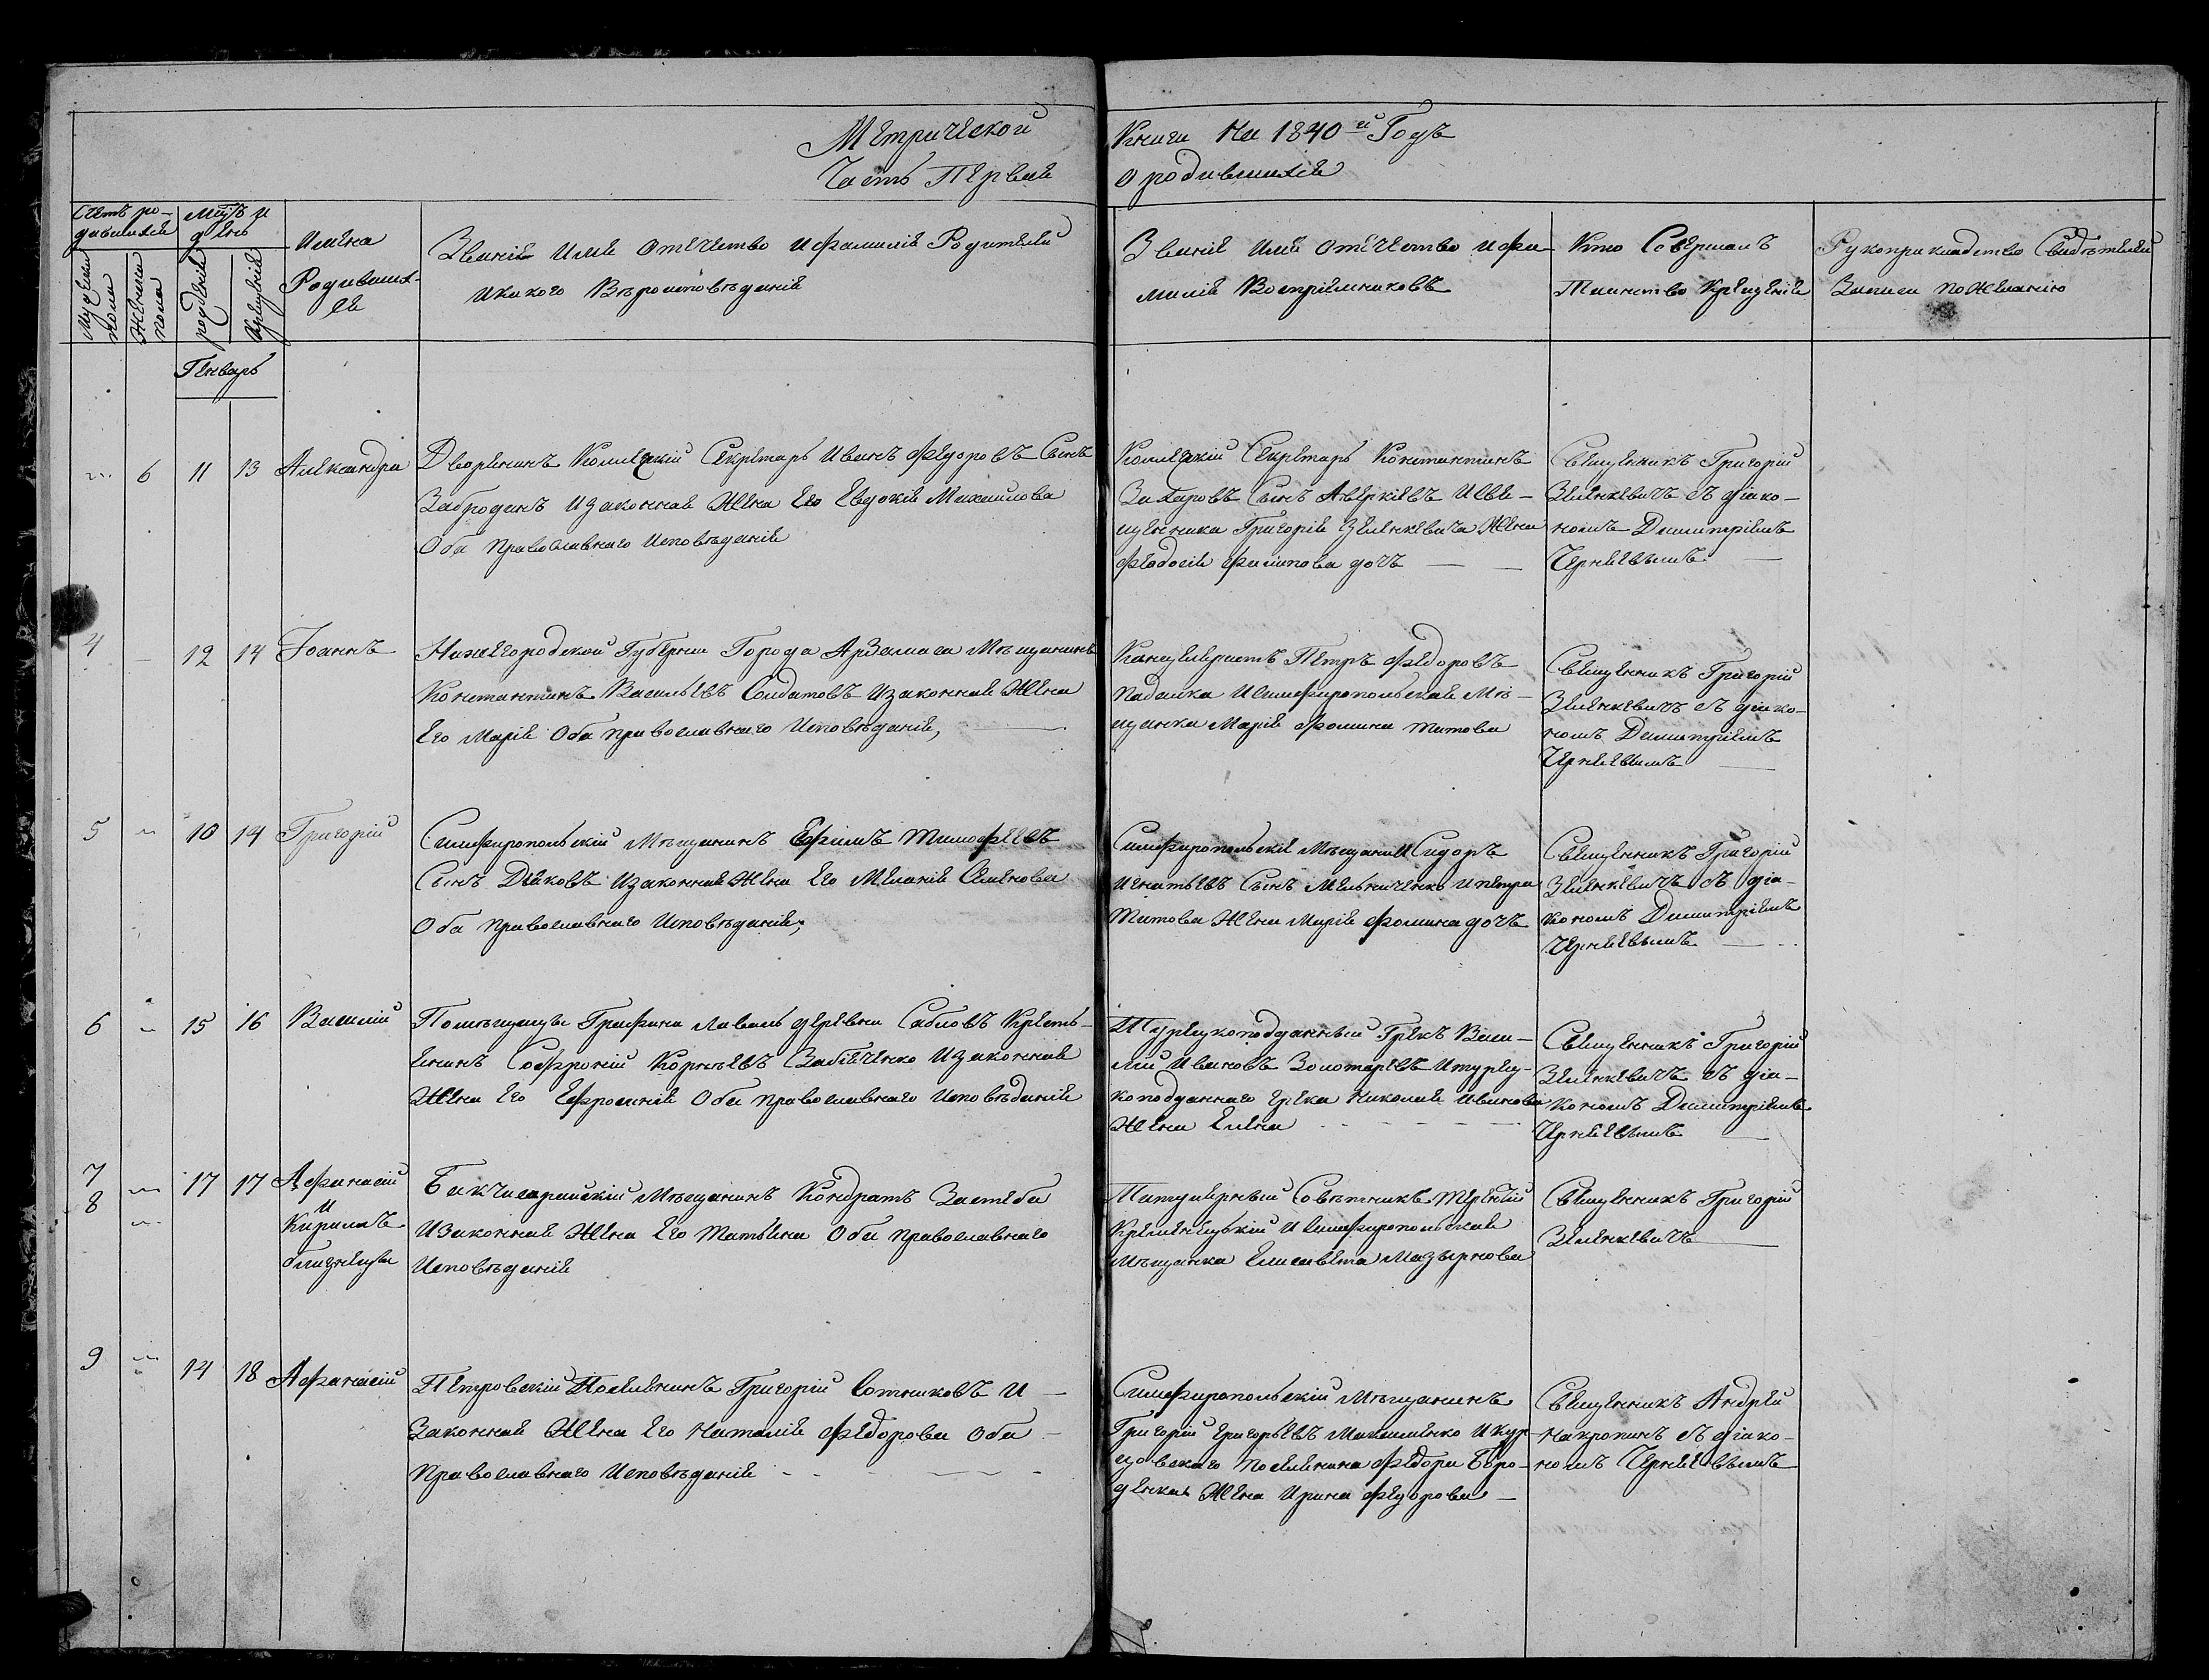 Метрической
Часть Первая
Книги На 1840й Годъ
о родившихся
Счетъ ро-
дившихся
Мужеска
пола
Женска
пола
Мѣсяцъ и
день
рожденія
Крещенія
Имена
Родивших-
ся
Званіе Имя отечество и фамилія Родителей
и какого Вѣроисповѣданія
Званіе Имя отечество и фа-
милія Воспріемниковъ
Кто Совершалъ
Таинство Крещенія
Рукоприкладство Свидѣтелей
Записи по Желанію
Генварь
6 11 13 Александра
Дворянинъ Колежскій Секретарь Иванъ Федоровъ Сынъ
Забродинъ и законная Жена Его Евдокія Михаилова
Оба православнаго исповѣданія
Колежскій Секретарь Константинъ
Захаровъ Сынъ Аверкіевъ и Свя-
щенника Григорія Зеленкевича Жена
Феодосія Филипова дочь
Священникъ Григорій
Зеленкевичъ съ діако-
номъ Димитріемъ
Черняевымъ
4 — 12 14 Іоаннъ
Нижегородской Губерніи Города Арзамаса Мѣщанинъ
Константинъ Васильевъ Солдатовъ и законная Жена
Его Марія Оба православнаго Исповѣданія,
Канцеляристъ Петръ Федоровъ
Падалка и Симферопольская Мѣ-
щанка Марія Фомина Титова
Священникъ Григорій
Зеленкевичъ съ діако-
номъ Димитріемъ
Черняевымъ
5 10 14 Григорій
Симферопольскій Мѣщанинъ Ефимъ Тимофѣевъ
Сынъ Дьяковъ и законная Жена Его Меланія Семенова
Оба православнаго Исповѣданія;
Симферопольскіе Мѣщани Сидоръ
Игнатьевъ Сынъ Мельниченко и петра
Титова Жена Марія Фомина дочь
Священникъ Григорій
Зеленкевичъ съ діа-
кономъ Димитріемъ
Черняевымъ
6 15 16 Василій
Помѣщицы Графини Лаваль деревни Сабловъ Кресть-
янинъ Софроній Корнѣевъ Забіяченко и законная
Жена Его Ефросинія Оба православнаго Исповѣданія
Турецкоподданный Грекъ Васи-
лій Ивановъ Золотаревъ и турец-
коподданнаго грека Николая Иванова
Жена Елена
Священникъ Григорій
Зеленкевичъ съ діа-
кономъ Димитріемъ
Черняевымъ
7
8
17 17 Афанасій
и
Кирилъ
близнецы
Бакчисарайскій Мѣщанинъ Кондратъ Застеба
и законная Жена Его Татьяна Оба православнаго
Исповѣданія
Титулярный Совѣтникъ Терентій
Кременецкій и Симферопольская
Мѣщанка Елисавета Мазырнова
Священникъ Григорій
Зеленкевичъ
9 14 18 Афанасій
Петровскій Поселянинъ Григорій Сотниковъ и
Законная Жена Его Наталія Федорова Оба
Православнаго Исповѣданія
Симферопольскій Мѣщанинъ
Григорій Григорьевъ Максименко и Кур-
цовскаго поселянина Федора Боро-
денка Жена Ирина Федорова
Священникъ Андрей
Накропинъ съ діако-
номъ Черняевымъ